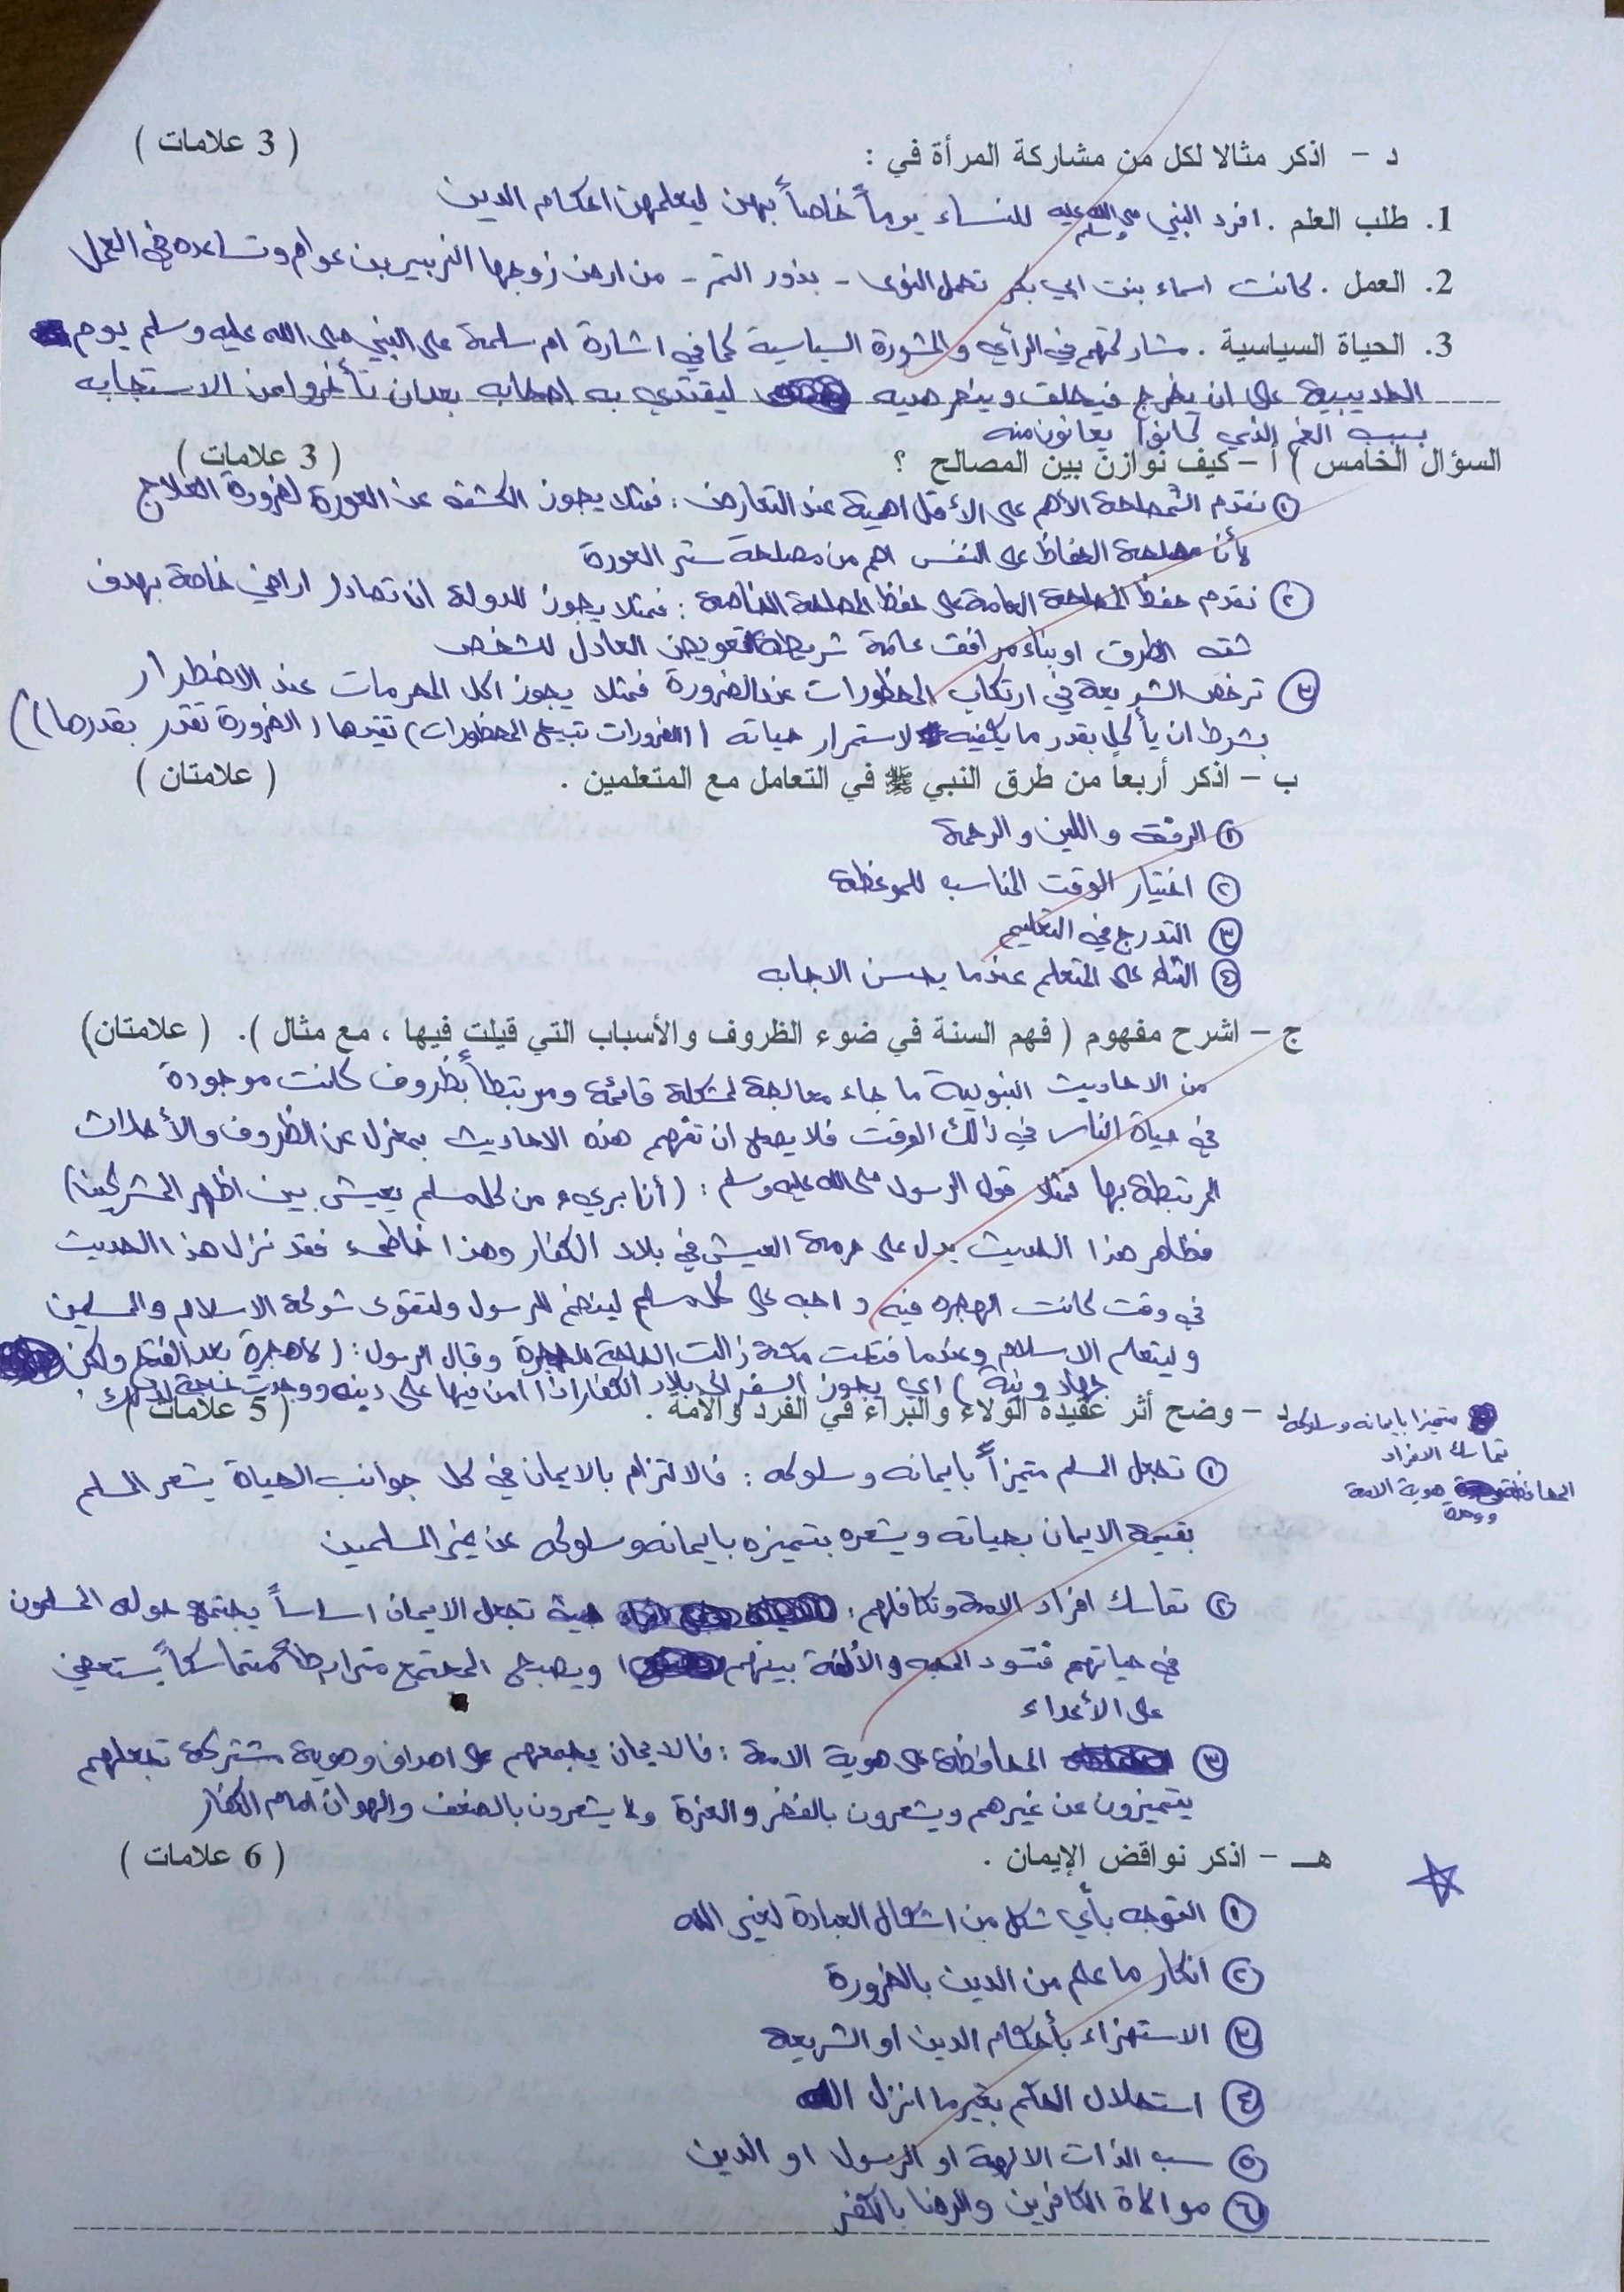 د - اذكر مثالا لكل من مشاركة المرأة في : ( 3 علامات )
1. طلب العلم . افرد النبي صلى الله عليه وسلم للنساء يوماً خاصاً بهن ليعلمهن احكام الدين
2. العمل . كانت اسماء بنت ابي بكر تحمل النوى - بذور التمر - من ارض زوجها الزبير بن عوام وتساعده في العمل
3. الحياة السياسية . مشاركتهم في الرأي والمشورة السياسية كما في اشارة ام سلمة على النبي صلى الله عليه وسلم يوم
الحديبية على ان يخرج فيحلق وينحر هديه ليقتدي به اصحابه بعد ان تأخروا عن الاستجابه
بسبب الغم الذي كانوا يعانون منه
السؤال الخامس ) أ - كيف نوازن بين المصالح ؟ ( 3 علامات )
① نقدم المصلحة الأهم على الأقل اهمية عند التعارض : فمثلا يجوز الكشف عن العورة لضرورة العلاج
لأن مصلحة الحفاظ على النفس اهم من مصلحة ستر العورة
② نقدم حفظ المصلحة العامة على حفظ المصلحة الخاصة : فمثلا يجوز للدولة ان تصادر اراضي خاصة بهدف
شق الطرق او بناء مرافق عامة شريطة التعويض العادل للشخص
③ ترخص الشريعة في ارتكاب المحظورات عند الضرورة فمثلا يجوز اكل المحرمات عند الاضطرار
بشرط ان يأكل بقدر ما يكفيه لاستمرار حياته ( الضرورات تبيح المحظورات ) تقيدها ( الضرورة تقدر بقدرها ) )
ب - اذكر أربعاً من طرق النبي ﷺ في التعامل مع المتعلمين . ( علامتان )
① الرفق واللين والرحمة
② اختيار الوقت المناسب للموعظة
③ التدرج في التعليم
④ الثناء على المتعلم عندما يحسن الاجابه
ج - اشرح مفهوم ( فهم السنة في ضوء الظروف والأسباب التي قيلت فيها ، مع مثال ). ( علامتان)
من الاحاديث النبوية ما جاء معالجة لمشكلة قائمة ومرتبطاً بظروف كانت موجودة
في حياة الناس في ذلك الوقت فلا يصح ان تفهم هذه الاحاديث بمعزل عن الظروف والأحداث
المرتبطة بها فمثلا قول الرسول صلى الله عليه وسلم : ( أنا بريء من كل مسلم يعيش بين اظهر المشركين )
فظاهر هذا الحديث يدل على حرمة العيش في بلاد الكفار وهذا خاطىء فقد نزل هذا الحديث
في وقت كانت الهجره فيه واجبه على كل مسلم لينضم للرسول ولتقوى شوكة الاسلام والمسلمين
وليتعلم الاسلام وعندما فتحت مكة زالت الحاجة للهجرة وقال الرسول : ( لا هجرة بعد الفتح ولكن
جهاد ونية ) اي يجوز السفر الى بلاد الكفار اذا أمن فيها على دينه ووجدت حاجة لذلك .
د - وضح أثر عقيدة الولاء والبراء في الفرد والأمة . ( 5 علامات )
متميزا بايمانه وسلوكه
تماسك الافراد
المحافظة هوية الامة
ووحدة
① تجعل المسلم متميزاً بايمانه وسلوكه : فالالتزام بالايمان في كل جوانب الحياة يشعر المسلم
بقيمة الايمان بحياته ويشعره بتميزه بايمانه وسلوكه عن غير المسلمين
② تماسك افراد الامة وتكافلهم : حيث تجعل الايمان اساساً يجتمع حوله المسلمون
في حياتهم فتسود المحبه والألفة بينهم ويصبح المجتمع مترابطاً متماسكاً يستعصي
على الأعداء
③ المحافظة على هوية الامة : فالايمان يجمعهم على اهداف وهوية مشتركة تجعلهم
يتميزون عن غيرهم ويشعرون بالفخر والعزة ولا يشعرون بالضعف والهوان امام الكفار
هـ - اذكر نواقض الإيمان . ( 6 علامات )
① التوجه بأي شكل من اشكال العبادة لغير الله
② انكار ما علم من الدين بالضرورة
③ الاستهزاء بأحكام الدين او الشريعة
④ استحلال الحكم بغير ما انزل الله
⑤ سب الذات الالهية او الرسول او الدين
⑥ موالاة الكافرين والرضا بالكفر